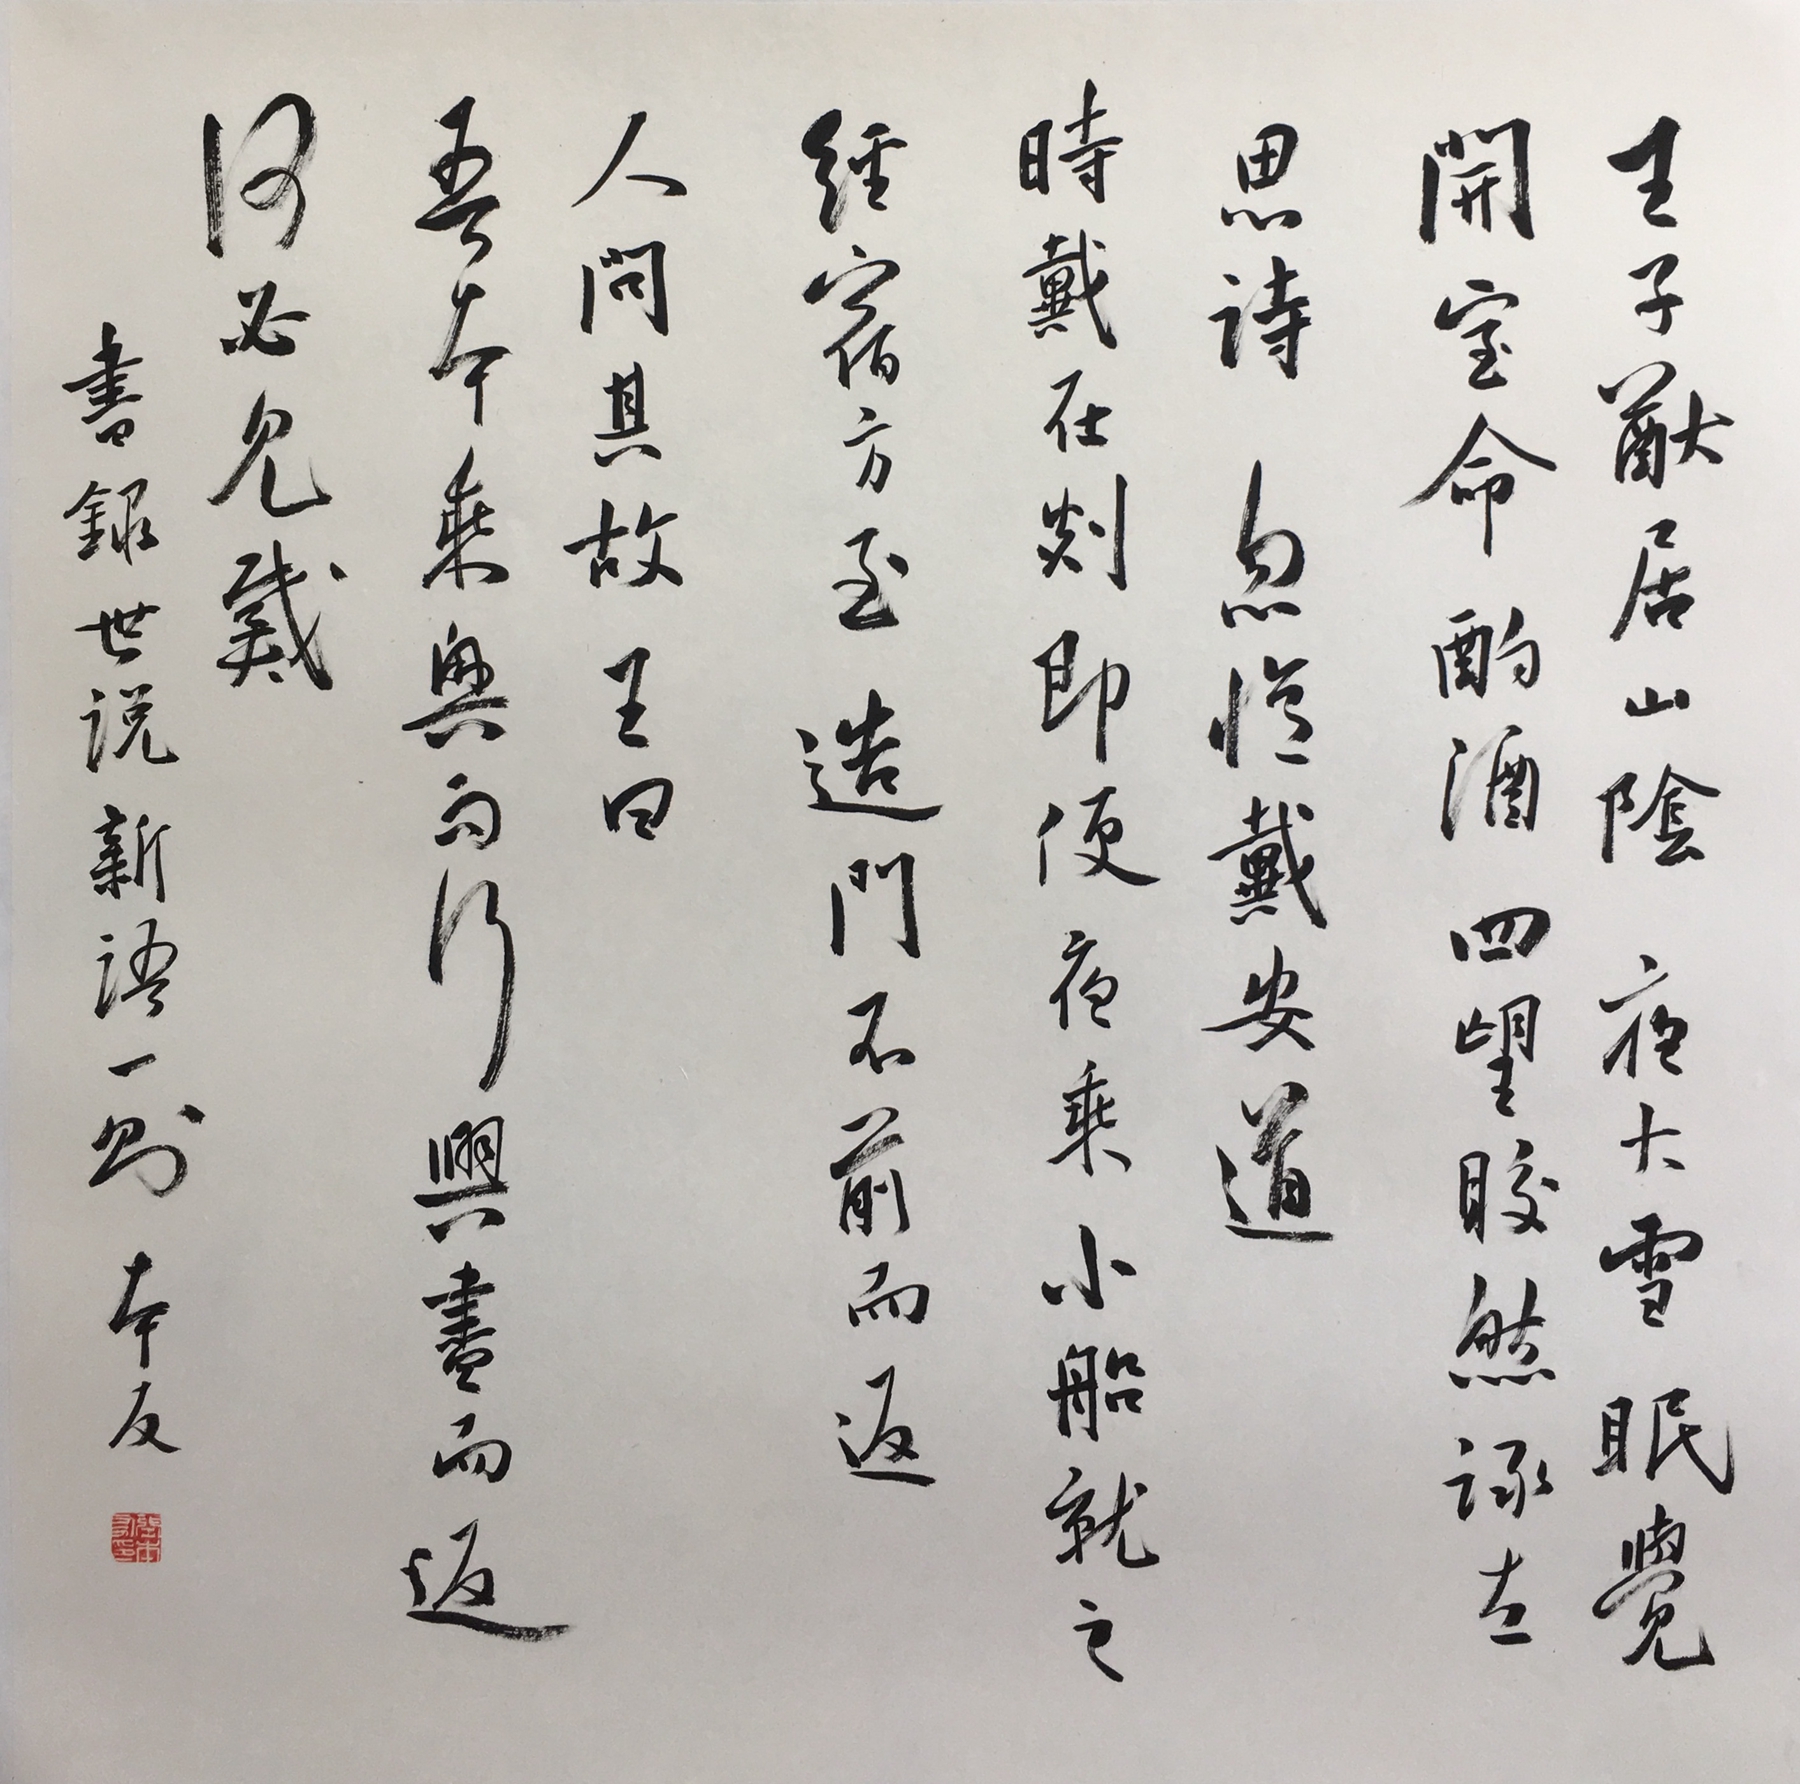 王子猷居山陰夜大雪眠覺
開室命酌酒四望皎然詠左
思詩忽憶戴安道
時戴在剡即便夜乘小船就之
經宿方至造門不前而返
人問其故王曰
吾本乘興而行興盡而返
何必見戴
書錄世説新語一則 本友